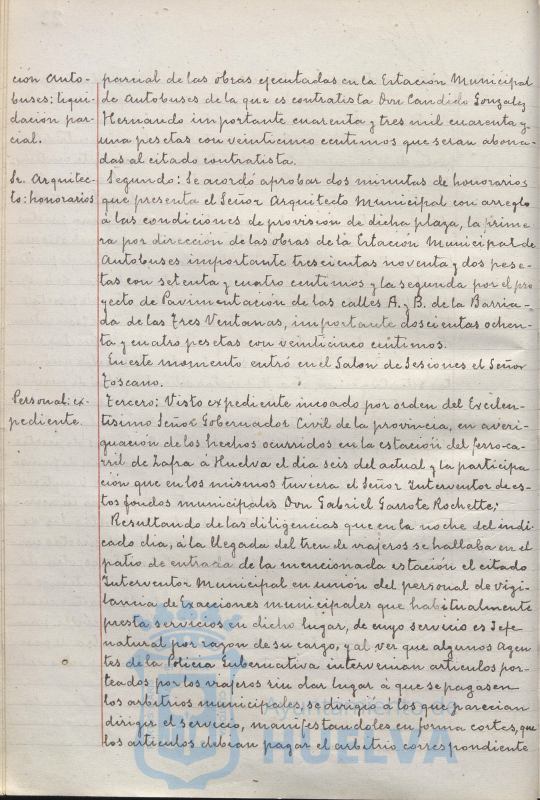 ción Auto-
buses: liqui-
dación par-
cial.
parcial de las obras ejecutadas en la Estación Municipal
de Autobuses de la que es contratista Don Candido Gonzalez
Hernando importante cuarenta y tres mil cuarenta y
una pesetas con veinticinco centimos que seran abona-
das al citado contratista.
Sr. Arquitec-
to: honorarios
Segundo: Se acordó aprobar dos minutas de honorarios
que presenta el Señor Arquitecto Municipal con arreglo
á las condiciones de provisión de dicha plaza, la prime
ra por dirección de las obras de la Estacion Municipal de
Autobuses importante trescientas noventa y dos pese-
tas con setenta y cuatro centimos y la segunda por el pro
yecto de Pavimentación de las calles A. y B. de la Barria-
da de las Tres Ventanas, importante doscientas ochen-
ta y cuatro pesetas con veinticinco centimos.
En este momento entró en el Salon de Sesiones el Señor
Toscano.
Personal: ex-
pediente.
Tercero: Visto expediente incoado por orden del Excelen-
tisimo Señor Gobernador Civil de la provincia, en averi-
guación de los hechos ocurridos en la estación del ferro-ca-
rril de Zafra á Huelva el dia seis del actual y la participa
ción que en los mismos tuviera el Señor Interventor de es-
tos fondos municipales Don Gabriel Garrote Rochette;
Resultando de las diligencias que en la noche del indi-
cado dia, á la llegada del tren de viajeros se hallaba en el
patio de entrada de la mencionada estación el citado
Interventor Municipal en unión del personal de vigi-
lancia de Exacciones municipales que habitualmente
presta servicios en dicho lugar, de cuyo servicio es Jefe
natural por razon de su cargo, y al ver que algunos Agen-
tes de la Policia Gubernativa intervenian articulos por-
teados por los viajeros sin dar lugar á que se pagasen
los arbitrios municipales, se dirigió á los que parecian
dirigir el servicio, manifestandoles en forma cortes, que
los articulos debian pagar el arbitrio correspondiente
Ayuntamiento de
HUELVA